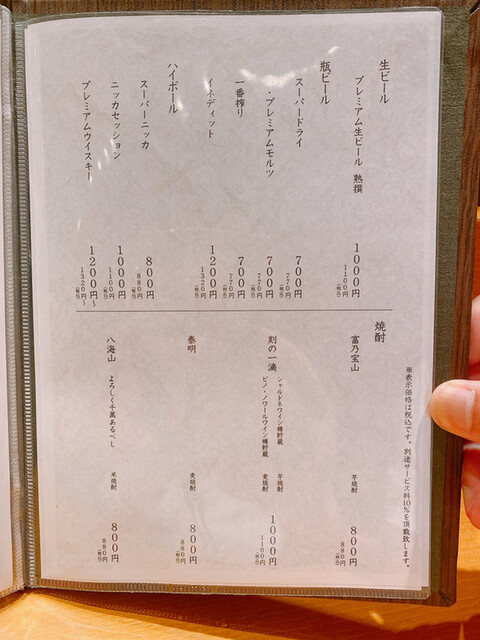 生ビール
プレミアム生ビール 熟撰 1000円 1100円(税込)
瓶ビール
スーパードライ 700円 770円(税込)
・プレミアムモルツ 700円 770円(税込)
一番搾り 700円 770円(税込)
イネディット 1200円 1320円(税込)
ハイボール
スーパーニッカ 800円 880円(税込)
ニッカセッション 1000円 1100円(税込)
プレミアムウイスキー 1200円~ 1320円~(税込)
※表示価格は税込です。別途サービス料10%を頂戴致します。
焼酎
富乃宝山 芋焼酎 800円 880円(税込)
刻の一滴 シャルドネワイン樽貯蔵 芋焼酎
ピノ・ノワールワイン樽貯蔵 麦焼酎 1000円 1100円(税込)
泰明 麦焼酎 800円 880円(税込)
八海山 よろしく千萬あるべし 米焼酎 800円 880円(税込)